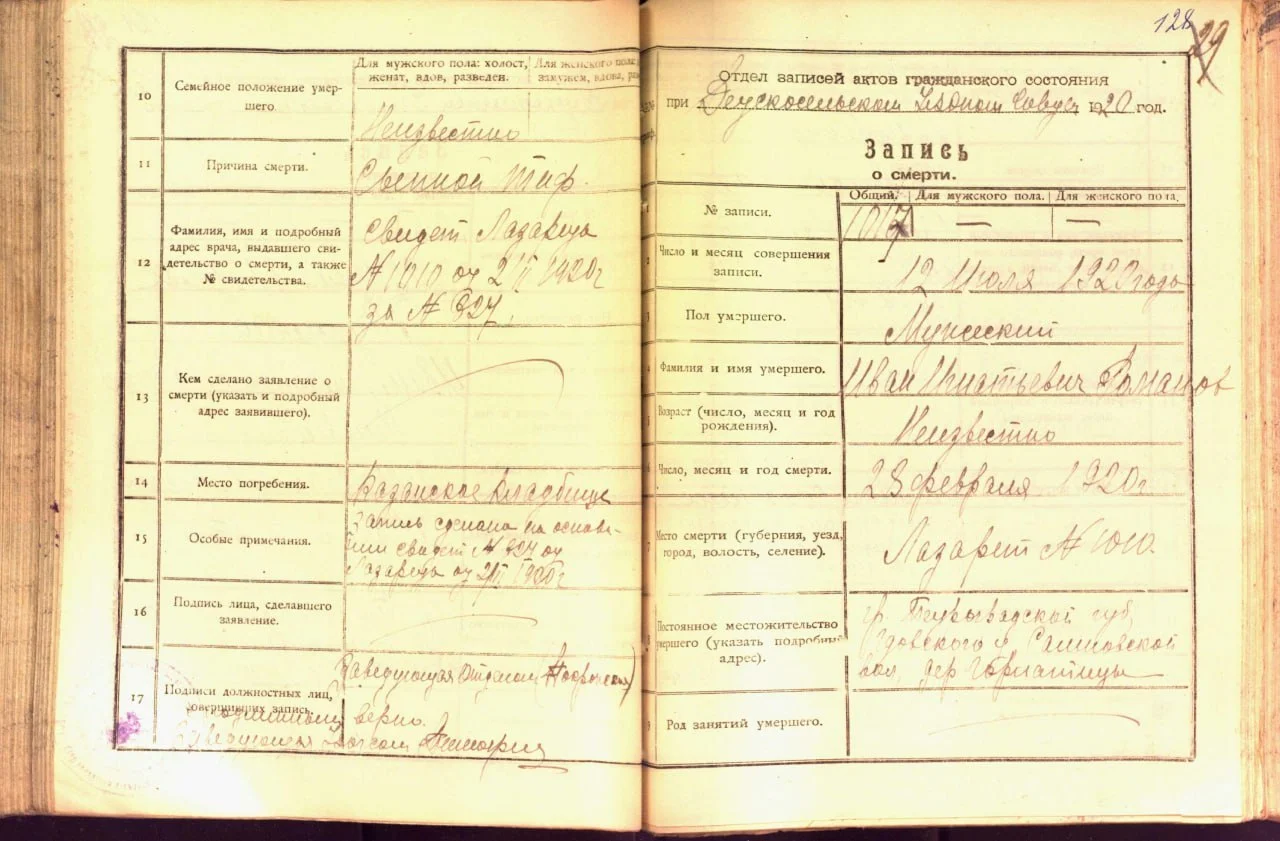 10
Семейное положение умер-
шего.
Для мужского пола: холост,
женат, вдов, разведен.
Для женского пола:
замужем, вдова, раз
Неизвестно
11
Причина смерти.
Сыпной тиф.
12
Фамилия, имя и подробный
адрес врача, выдавшего сви-
детельство о смерти, а также
№ свидетельства.
Свидет Лазарета
№ 1010 от 2/II 1920г
за № 927.
13
Кем сделано заявление о
смерти (указать и подробный
адрес заявившего).
14
Место погребения.
Казанское Кладбище
15
Особые примечания.
Запись сделана на основа-
нии свидет № 927 от
Лазарета от 2/II 1920г
16
Подпись лица, сделавшего
заявление.
17
Подписи должностных лиц,
совершивших запись.
Заведующая отделом
верно.
Заведующая
128
29
Отдел записей актов гражданского состояния
при Детскосельском Уездном Совуе 1920 год.
Запись
о смерти.
Общий. Для мужского пола. Для женского пола.
№ записи.
1017 — —
Число и месяц совершения
записи.
12 Июля 1920 года
Пол умершего.
Мужеский
Фамилия и имя умершего.
Иван Игнатьевич Романов
Возраст (число, месяц и год
рождения).
Неизвестно
Число, месяц и год смерти.
23 февраля 1920г
Место смерти (губерния, уезд,
город, волость, селение).
Лазарет № 1010.
Постоянное местожительство
умершего (указать подробный
адрес).
гр. Петроградской губ
Гдовского у
вол, дер
Род занятий умершего.